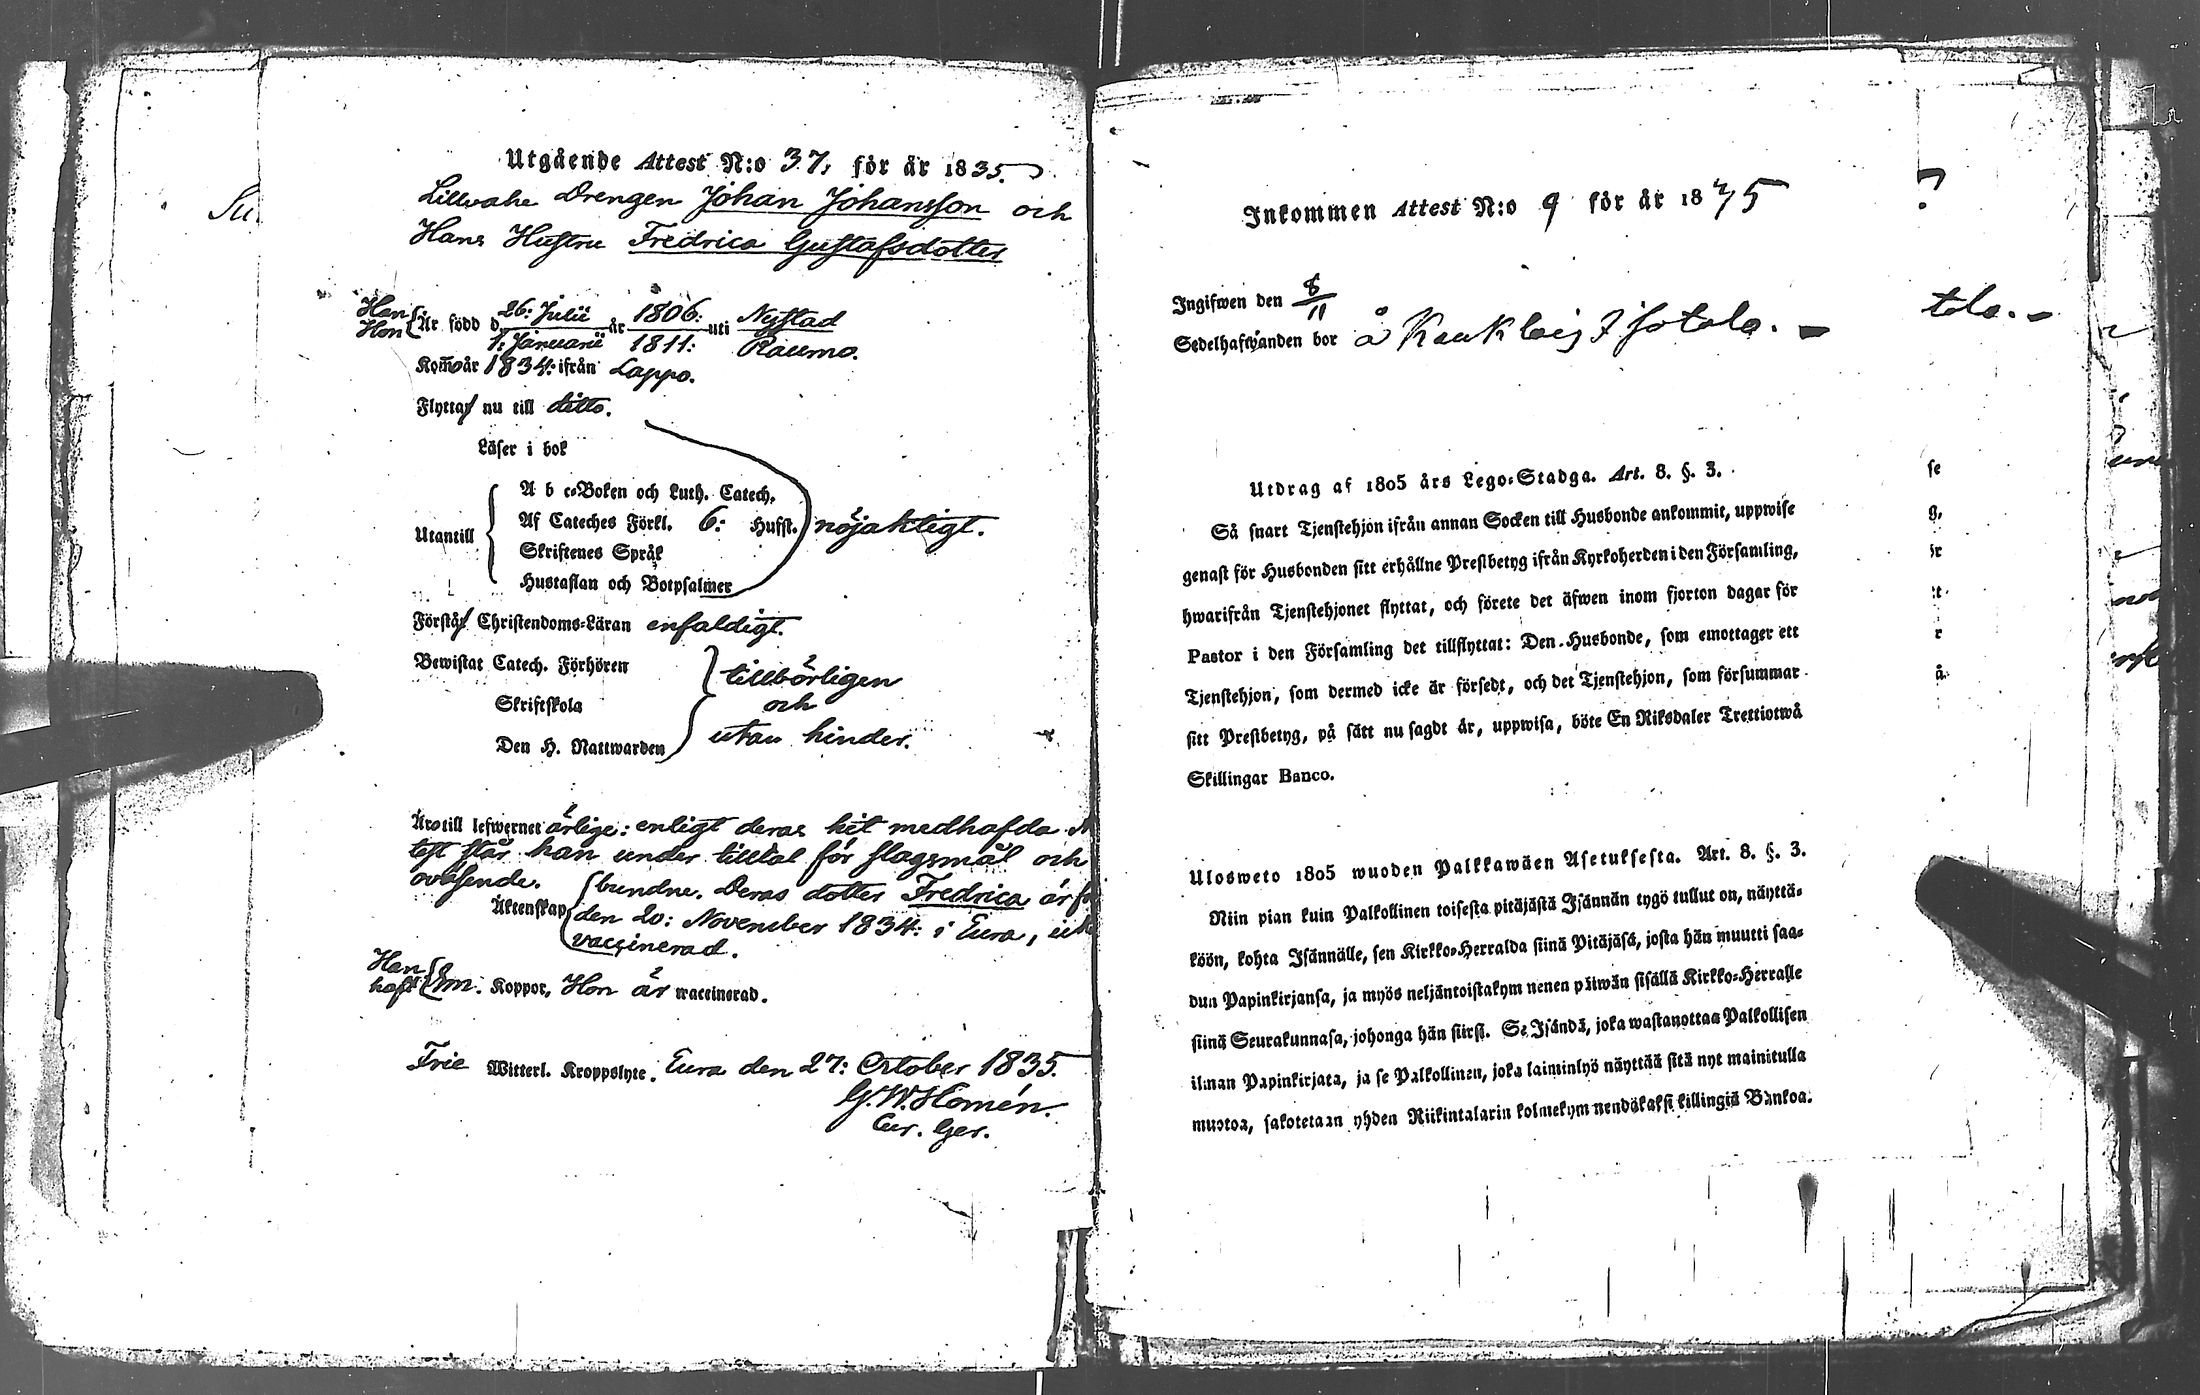 Utgående Attest N:o 37, för år 1835.
Lillwahe Drengen Johan Johansson och
Hans Hustru Fredrica Gustafsdotter
Han 26: Julii 1806: Nystad
Hon Är född d. år uti
1: Januarii 1811: Raumo.
Kom år 1834: ifrån Lappo.
Flytta nu till ditto.
Läser i bok
A b c-Boken och Luth. Catech.
Utantill Af Cateches Förkl. 6: Hufst. nöjaktigt.
Skriftenes Språk
Hustaflan och Botpsalmer
Förstå Christendoms-Läran enfaldigt.
Bewistat Catech. Förhören tillbörligen
Skriftskola och
Den H. Nattwarden utan hinder.
Äro till lefwernet ärlige: enligt deras hit medhafda At
test står han under tilltal för slagsmål och
oväsende.
Äktenskap bundne. Deras dotter Fredrica är
den 20: November 1834: i Eura,
vaccinerad.
Han
haft Koppor, Hon är waccinerad.
Frie Witterl. Kroppslyte. Eura den 27: October 1835.
G. W. Homén.
Cur. Ger.
Su
Inkommen Attest N:o 9 för år 1875
?
Ingifwen den 8/11
Sedelhafwanden bor å
tola.
Utdrag af 1805 års Lego-Stadga. Art. 8. §. 3.
Så snart Tjenstehjon ifrån annan Socken till Husbonde ankommit, uppwise
genast för Husbonden sitt erhållne Prestbetyg ifrån Kyrkoherden i den Församling,
hwarifrån Tjenstehjonet flyttat, och förete det äfwen inom fjorton dagar för
Pastor i den Församling det tillflyttat: Den Husbonde, som emottager ett
Tjenstehjon, som dermed icke är försedt, och det Tjenstehjon, som försummar
sitt Prestbetyg, på sätt nu sagdt är, uppwisa, böte En Riksdaler Trettiotwå
Skillingar Banco.
Ulosweto 1805 wuoden Palkkawäen Asetuksesta. Art. 8. §. 3.
Niin pian kuin Palkollinen toisesta pitäjästä Isännän tygö tullut on, näyttä-
köön, kohta Isännälle, sen Kirkko-Herralda siinä Pitäjäsä, josta hän muutti saa-
dun Papinkirjansa, ja myös neljäntoistakym nenen päiwän sisällä Kirkko-Herralle
siinä Seurakunnasa, johonga hän siirsi. Se Isändä, joka wastanottaa Palkollisen
ilman Papinkirjata, ja se Palkollinen, joka laiminlyö näyttää sitä nyt mainitulla
muotoa, sakotetaan yhden Riikintalarin kolmekym nendäkaksi killingiä Bankoa.
se
g,